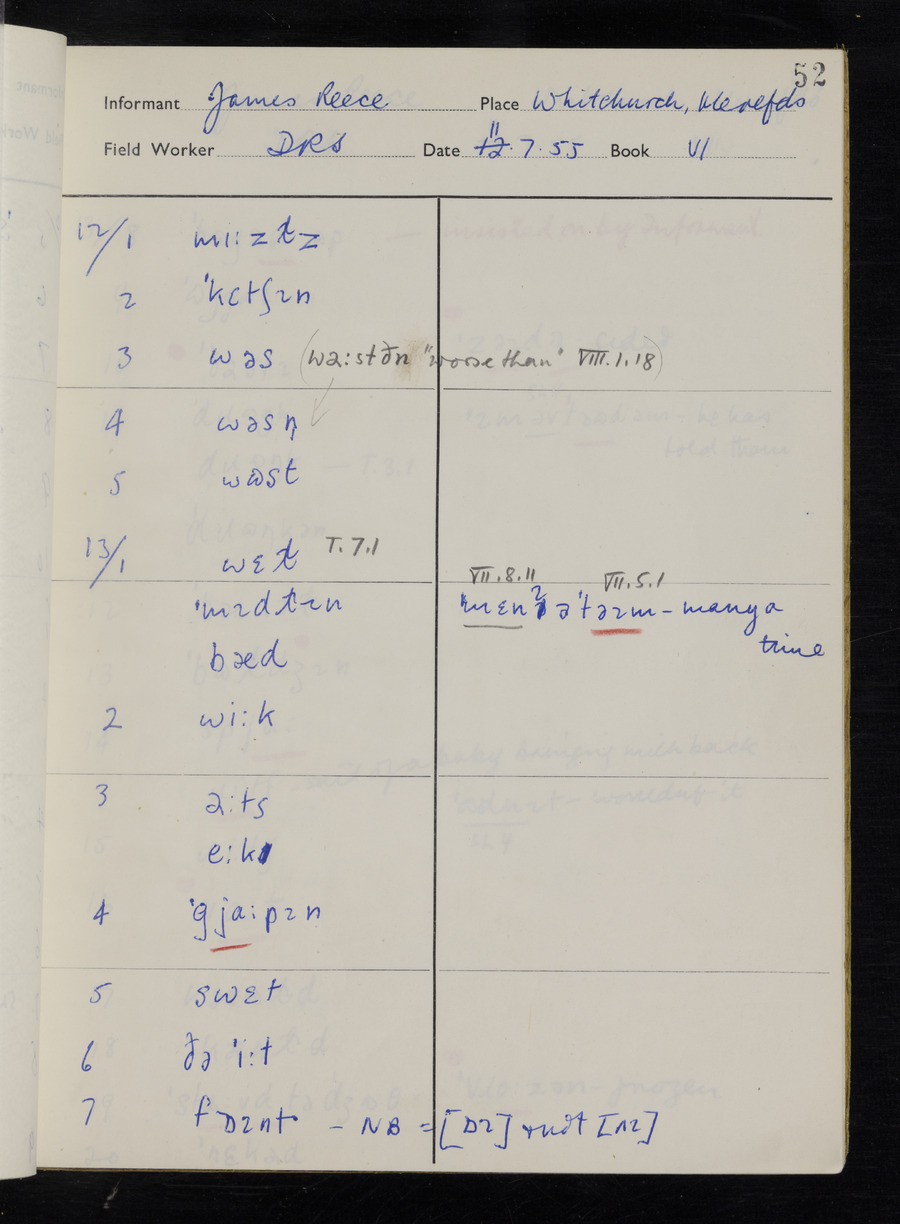 52
Informant James Reece Place Whitchurch, Herefds
Field Worker DRS Date 11 12.7.55 Book VI
12/1 mıːzɫz
2 ˈkɪtʃɪn
3 wəs (wəːstðn "worse than" VIII.1.18)
4 wəsn̩
5 wəst
13/1 wɛɫ T.7.1
ˈmɪdɫɪn
VII.8.11 VII.5.1
ˈmɛnɪ ə ˈtəɪm - many a
time
bæd
2 wiːk
3 əːts
eːk
4 ˈgjaːpɪn
5 swɛt
6 ðə ˈiːt
7 fɒɪnt - NB = [ɒɪ] not [ʌɪ]